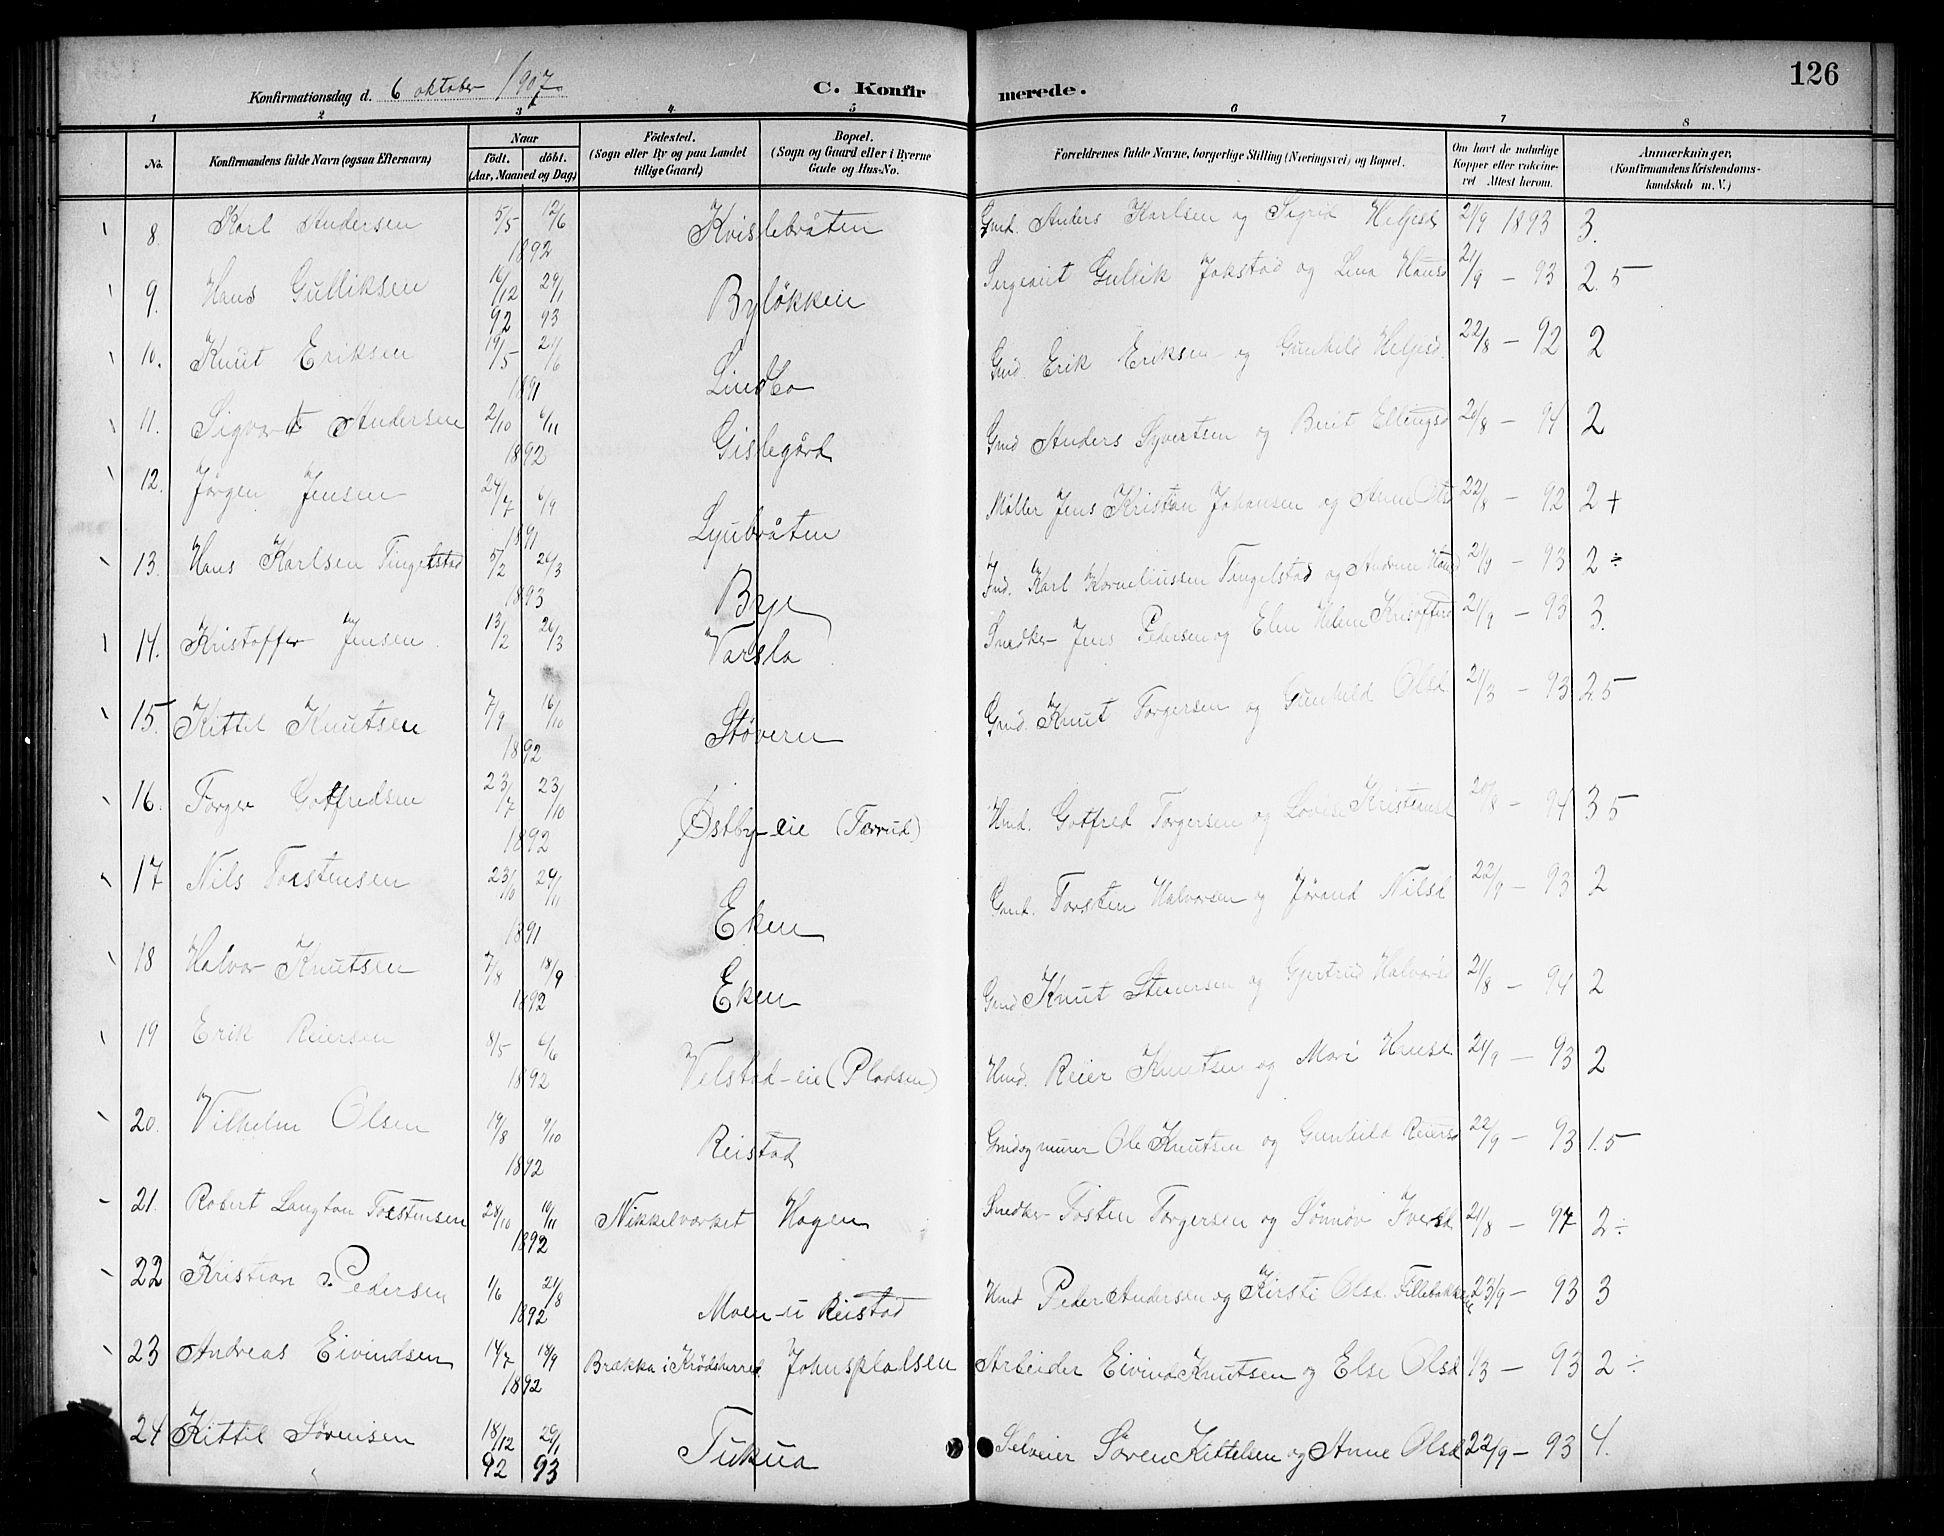 126
Konfirmationsdag d. 6 oktober 1907
C. Konfirmerede.
1 2 3 4 5 6 7 8
No. Konfirmandens fulde Navn (ogsaa Efternavn) Naar födt. döbt. (Aar, Maaned og Dag) Födested. (Sogn eller By og paa Landet tillige Gaard) Bopæl. (Sogn og Gaard eller i Byerne Gade og Hus-No. Forældrenes fulde Navne, borgerlige Stilling (Næringsvei) og Bopæl. Om havt de naturlige Kopper eller vaccineret Attest herom. Anmærkninger, (Konfirmandens Kristendomskundskab m. V.)
8. Karl Andersen 5/5 12/6 1892 Kvislebråten Gmd. Anders Karlsen og Sigrid Helgesd 21/9 1893 3.
9. Hans Gulliksen 16/12 92 29/1 93 Byløkken Sergeant Gullik Jokstad og Lina Hansd 21/9 – 93 2.5
10. Knut Eriksen 19/5 21/6 1891 Lindbo Gmd. Erik Eriksen og Gunhild Helgesd. 22/8 – 92 2
11. Sigvart Andersen 2/10 6/11 1892 Gislegård Gmd Anders Syvertsen og Berit Ellingsd 20/8 – 94 2
12. Jørgen Jensen 24/7 6/9 1891 Ljubråten Møller Jens Kristian Johansen og Anne Olsd 22/8 – 92 2+
13. Hans Karlsen Tingelstad 5/2 26/3 1893 Bye Ind. Karl Korneliussen Tingelstad og Andrine Hansd 21/9 – 93 2÷
14. Kristoffer Jensen 13/2 26/3 Varslo Snedker Jens Pedersen og Elen Helene Kristoffersd 21/9 – 93 3.
15. Kittil Knutsen 7/9 16/10 1892 Støveren Gmd. Knut Torgersen og Gunhild Olsd 21/3 – 93 2.5
16. Torger Gotfredsen 23/7 23/10 1892 Østby-eie (Torrud) Hmd. Gotfred Torgersen og Lovise Kristiansd 20/8 – 94 3 5
17 Nils Torstensen 23/10 29/11 1891 Eken Gmd. Torsten Halvorsen og Jørand Nilsd 22/9 – 93 2
18 Halvor Knutsen 7/8 18/9 1892 Eken Gmd Knut Stenersen og Gjertrud Halvorsd 21/8 – 94 2
19 Erik Reiersen 8/5 6/6 1892 Velstad-eie (Pladsen) Hmd. Reier Knutsen og Mari Knutsd. 21/9 – 93 2
20. Vilhelm Olsen 19/8 9/10 1892 Reistad Gmd og murer Ole Knutsen og Gunhild Reiersd 22/9 – 93 1.5
21. Robert Langton Torstensen 28/10 19/11 1892 Nikkelværket Hagen Snedker Tosten Torgersen og Sønnøv Iversd 21/8 – 97 2÷
22 Kristian Pedersen 1/6 21/8 1892 Moen-u Reistad Hmd Peder Andersen og Kirsti Olsd. Fillebakken 23/9 – 93 3
23 Andreas Eivindsen 14/7 18/9 1892 Brækka i Krødsherred Johnspladsen Arbeider Eivind Knutsen og Else Olsd 1/3 – 93 2÷
24 Kittil Sørensen 18/12 92 29/1 93 Tukua Selveier Søren Kittelsen og Anne Olsd 22/9 – 93 4.